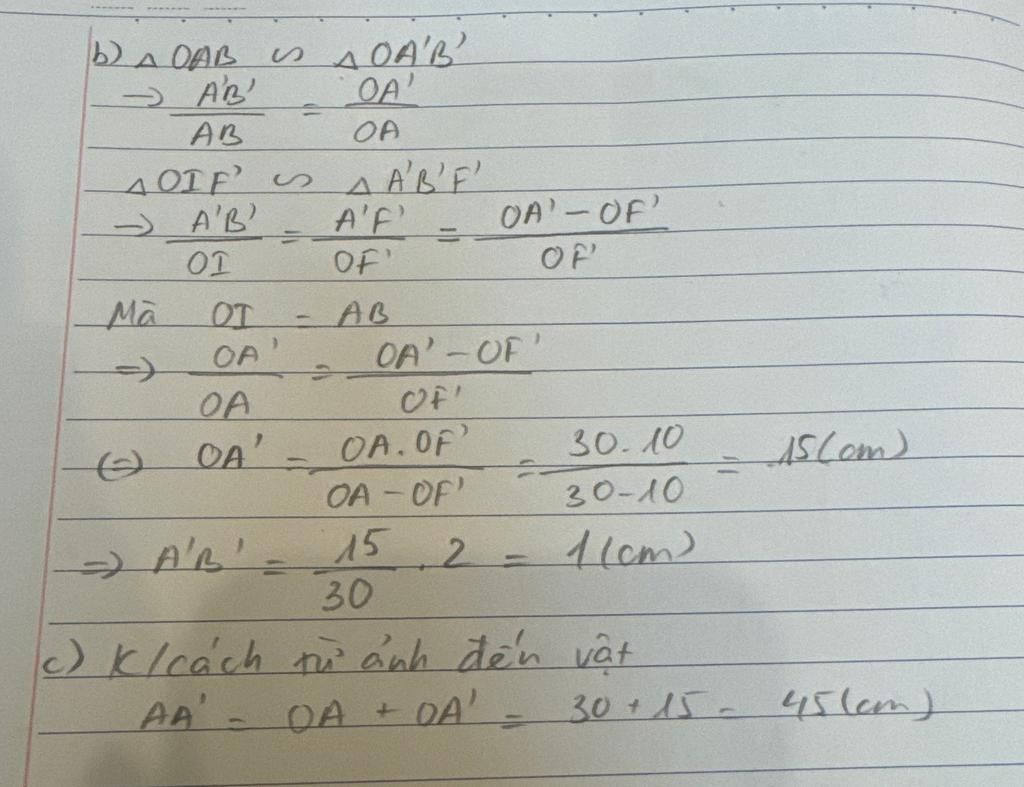 b) △ OAB ∽ △ OA'B'
→ A'B'/AB = OA'/OA
△ OIF' ∽ △ A'B'F'
→ A'B'/OI = A'F'/OF' = OA' - OF'/OF'
Mã OI = AB
=> OA'/OA = OA' - OF'/OF'
(=) OA' = OA.OF'/OA - OF' = 30.10/30-10 = 15(cm)
=> A'B' = 15/30 . 2 = 1(cm)
c) K/cách từ ảnh đến vật
AA' = OA + OA' = 30 + 15 = 45(cm)